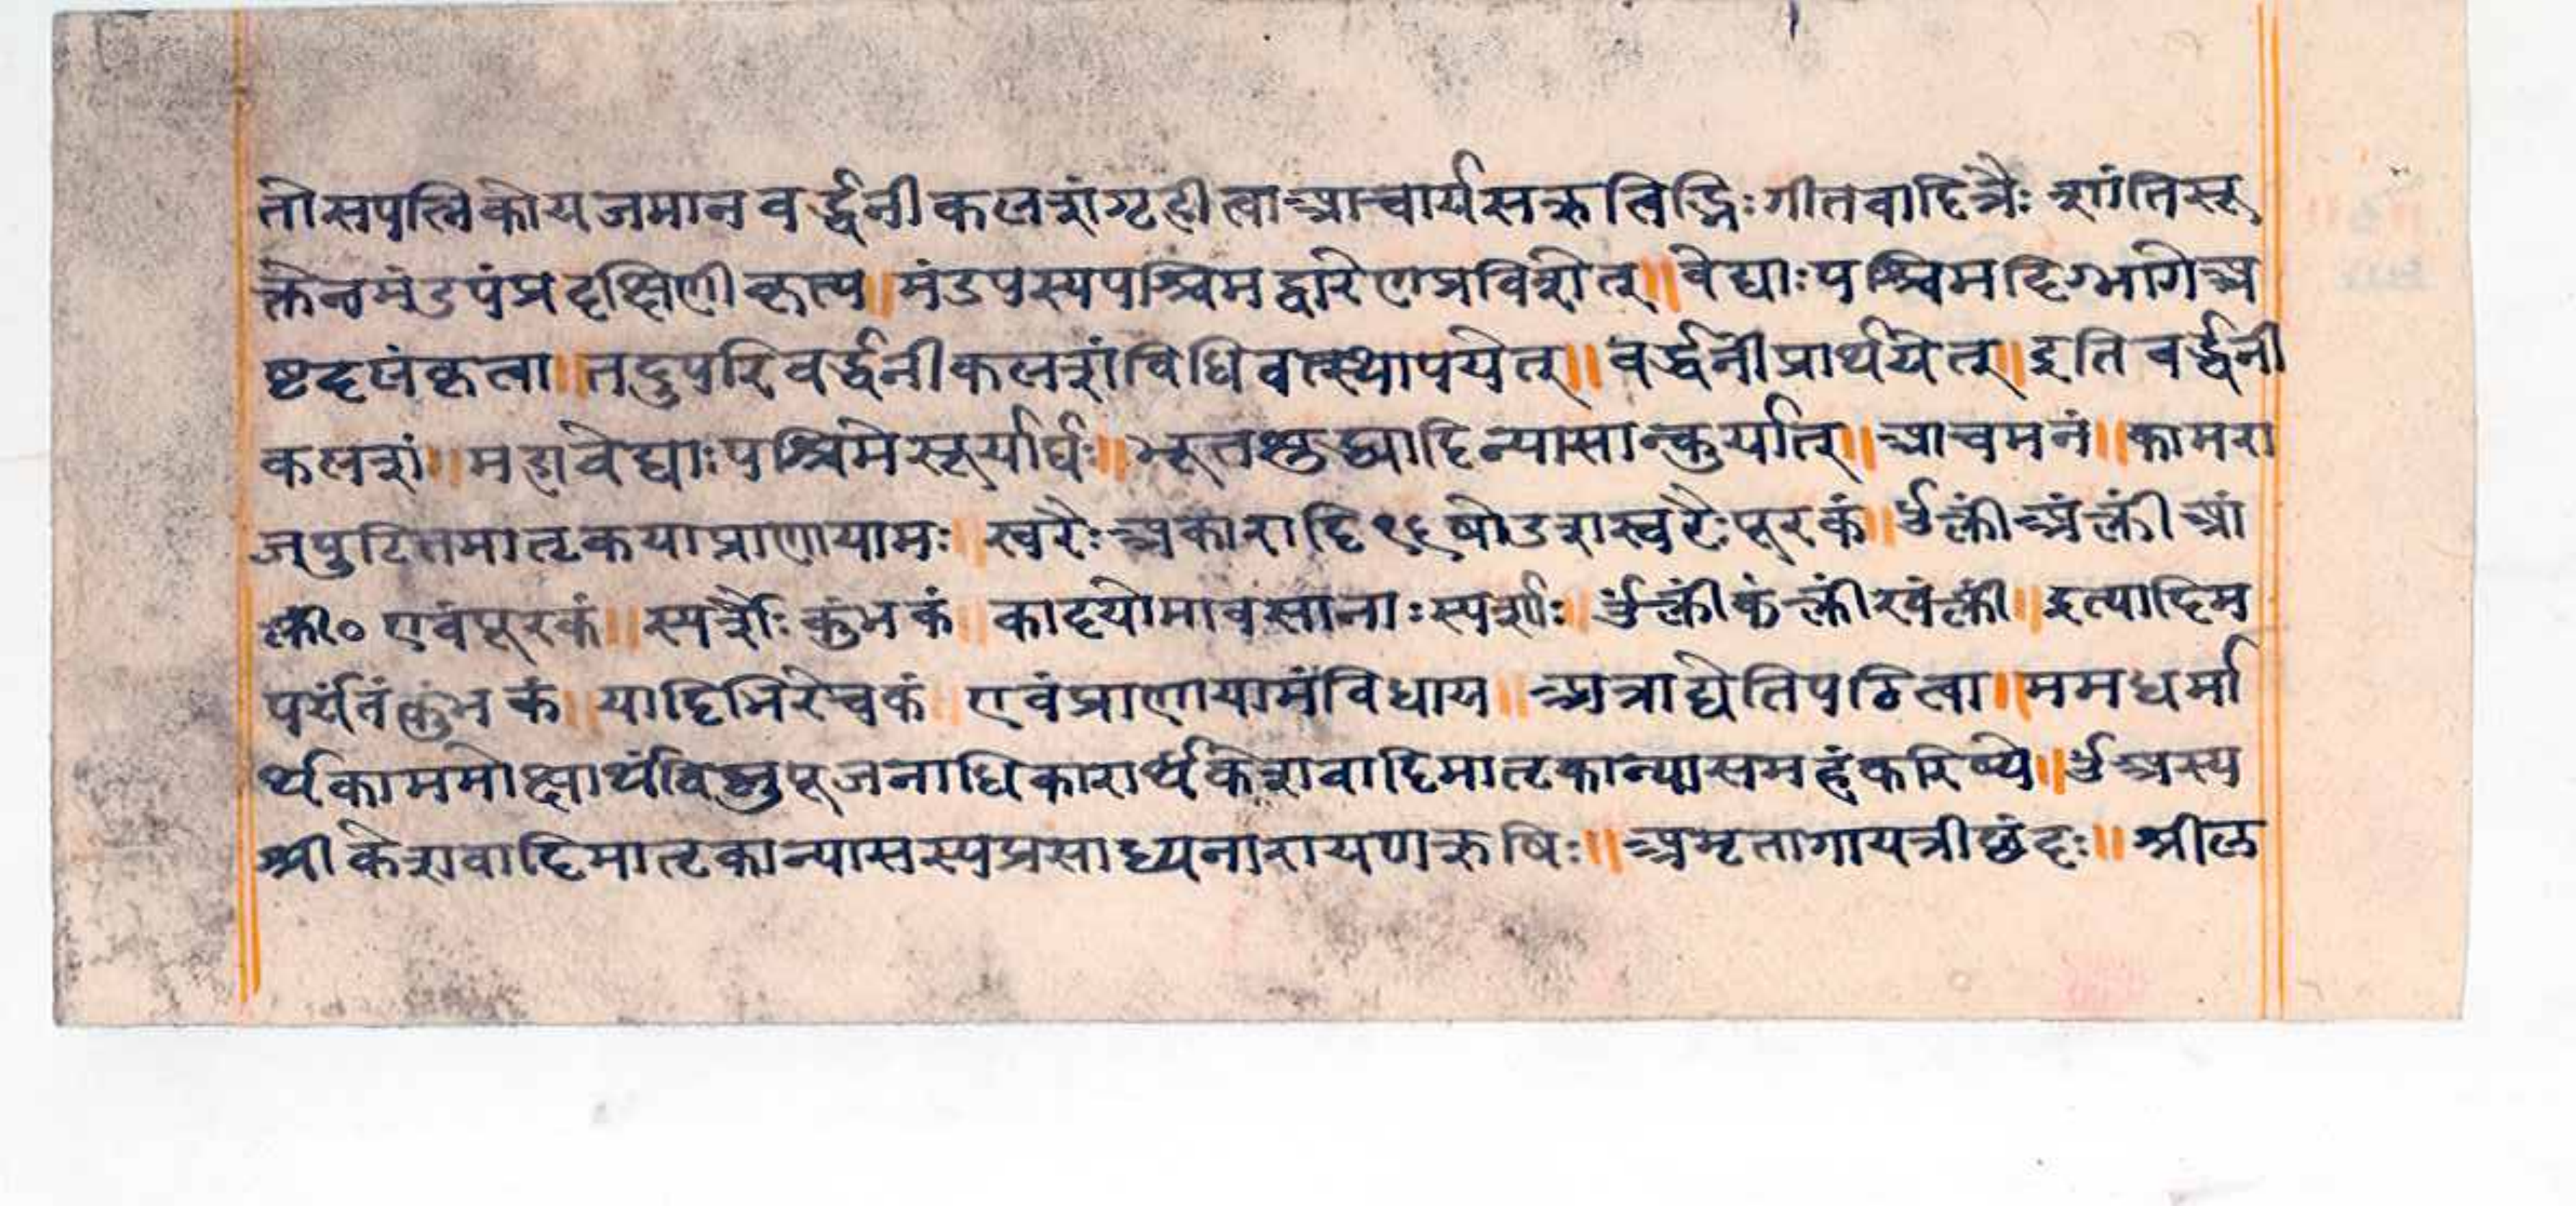 तो सपत्निको यजमान वर्द्धनीकलशं गृहीत्वा आचार्यसऋत्विद्भिः गीतवादित्रैः शांतिसू
क्तेन मंडपं प्रदक्षिणीकृत्य ॥ मंडपस्य पश्चिमद्वारेण प्रविशेत् ॥ वेद्याः पश्चिमदिग्भागे अ
ष्टदलं कृत्वा ॥ तदुपरि वर्द्धनीकलशं विधिवत्स्थापयेत् ॥ वर्द्धनीं प्रार्थयेत् ॥ इति वर्द्धनी
कलशं ॥ महावेद्याः पश्चिमे सूर्यार्घः ॥ भूतशुद्ध्यादिन्यासान्कुर्यात् ॥ आचमनं ॥ कामरा
जपुटितमातृकया प्राणायामः ॥ स्वरैः अकारादि १६ षोडशस्वरैः पूरकं ॥ ॐ क्लीं अं क्लीं आं
क्लीं० एवं पूरकं ॥ स्पर्शैः कुंभकं ॥ कादयो मावसानाः स्पर्शाः ॥ ॐ क्लीं कं क्लीं खं क्लीं ॥ इत्यादि म
पर्यंतं कुंभकं ॥ यादिभि रेचकं ॥ एवं प्राणायामं विधाय ॥ अत्राद्येति पठित्वा ॥ मम धर्मा
र्थकाममोक्षार्थं विष्णुपूजनाधिकारार्थं केशवादिमातृकान्यासमहं करिष्ये ॥ ॐ अस्य
श्रीकेशवादिमातृकान्यासस्य प्रसाध्यनारायण ऋषिः ॥ अमृतागायत्री छंदः ॥ श्रील